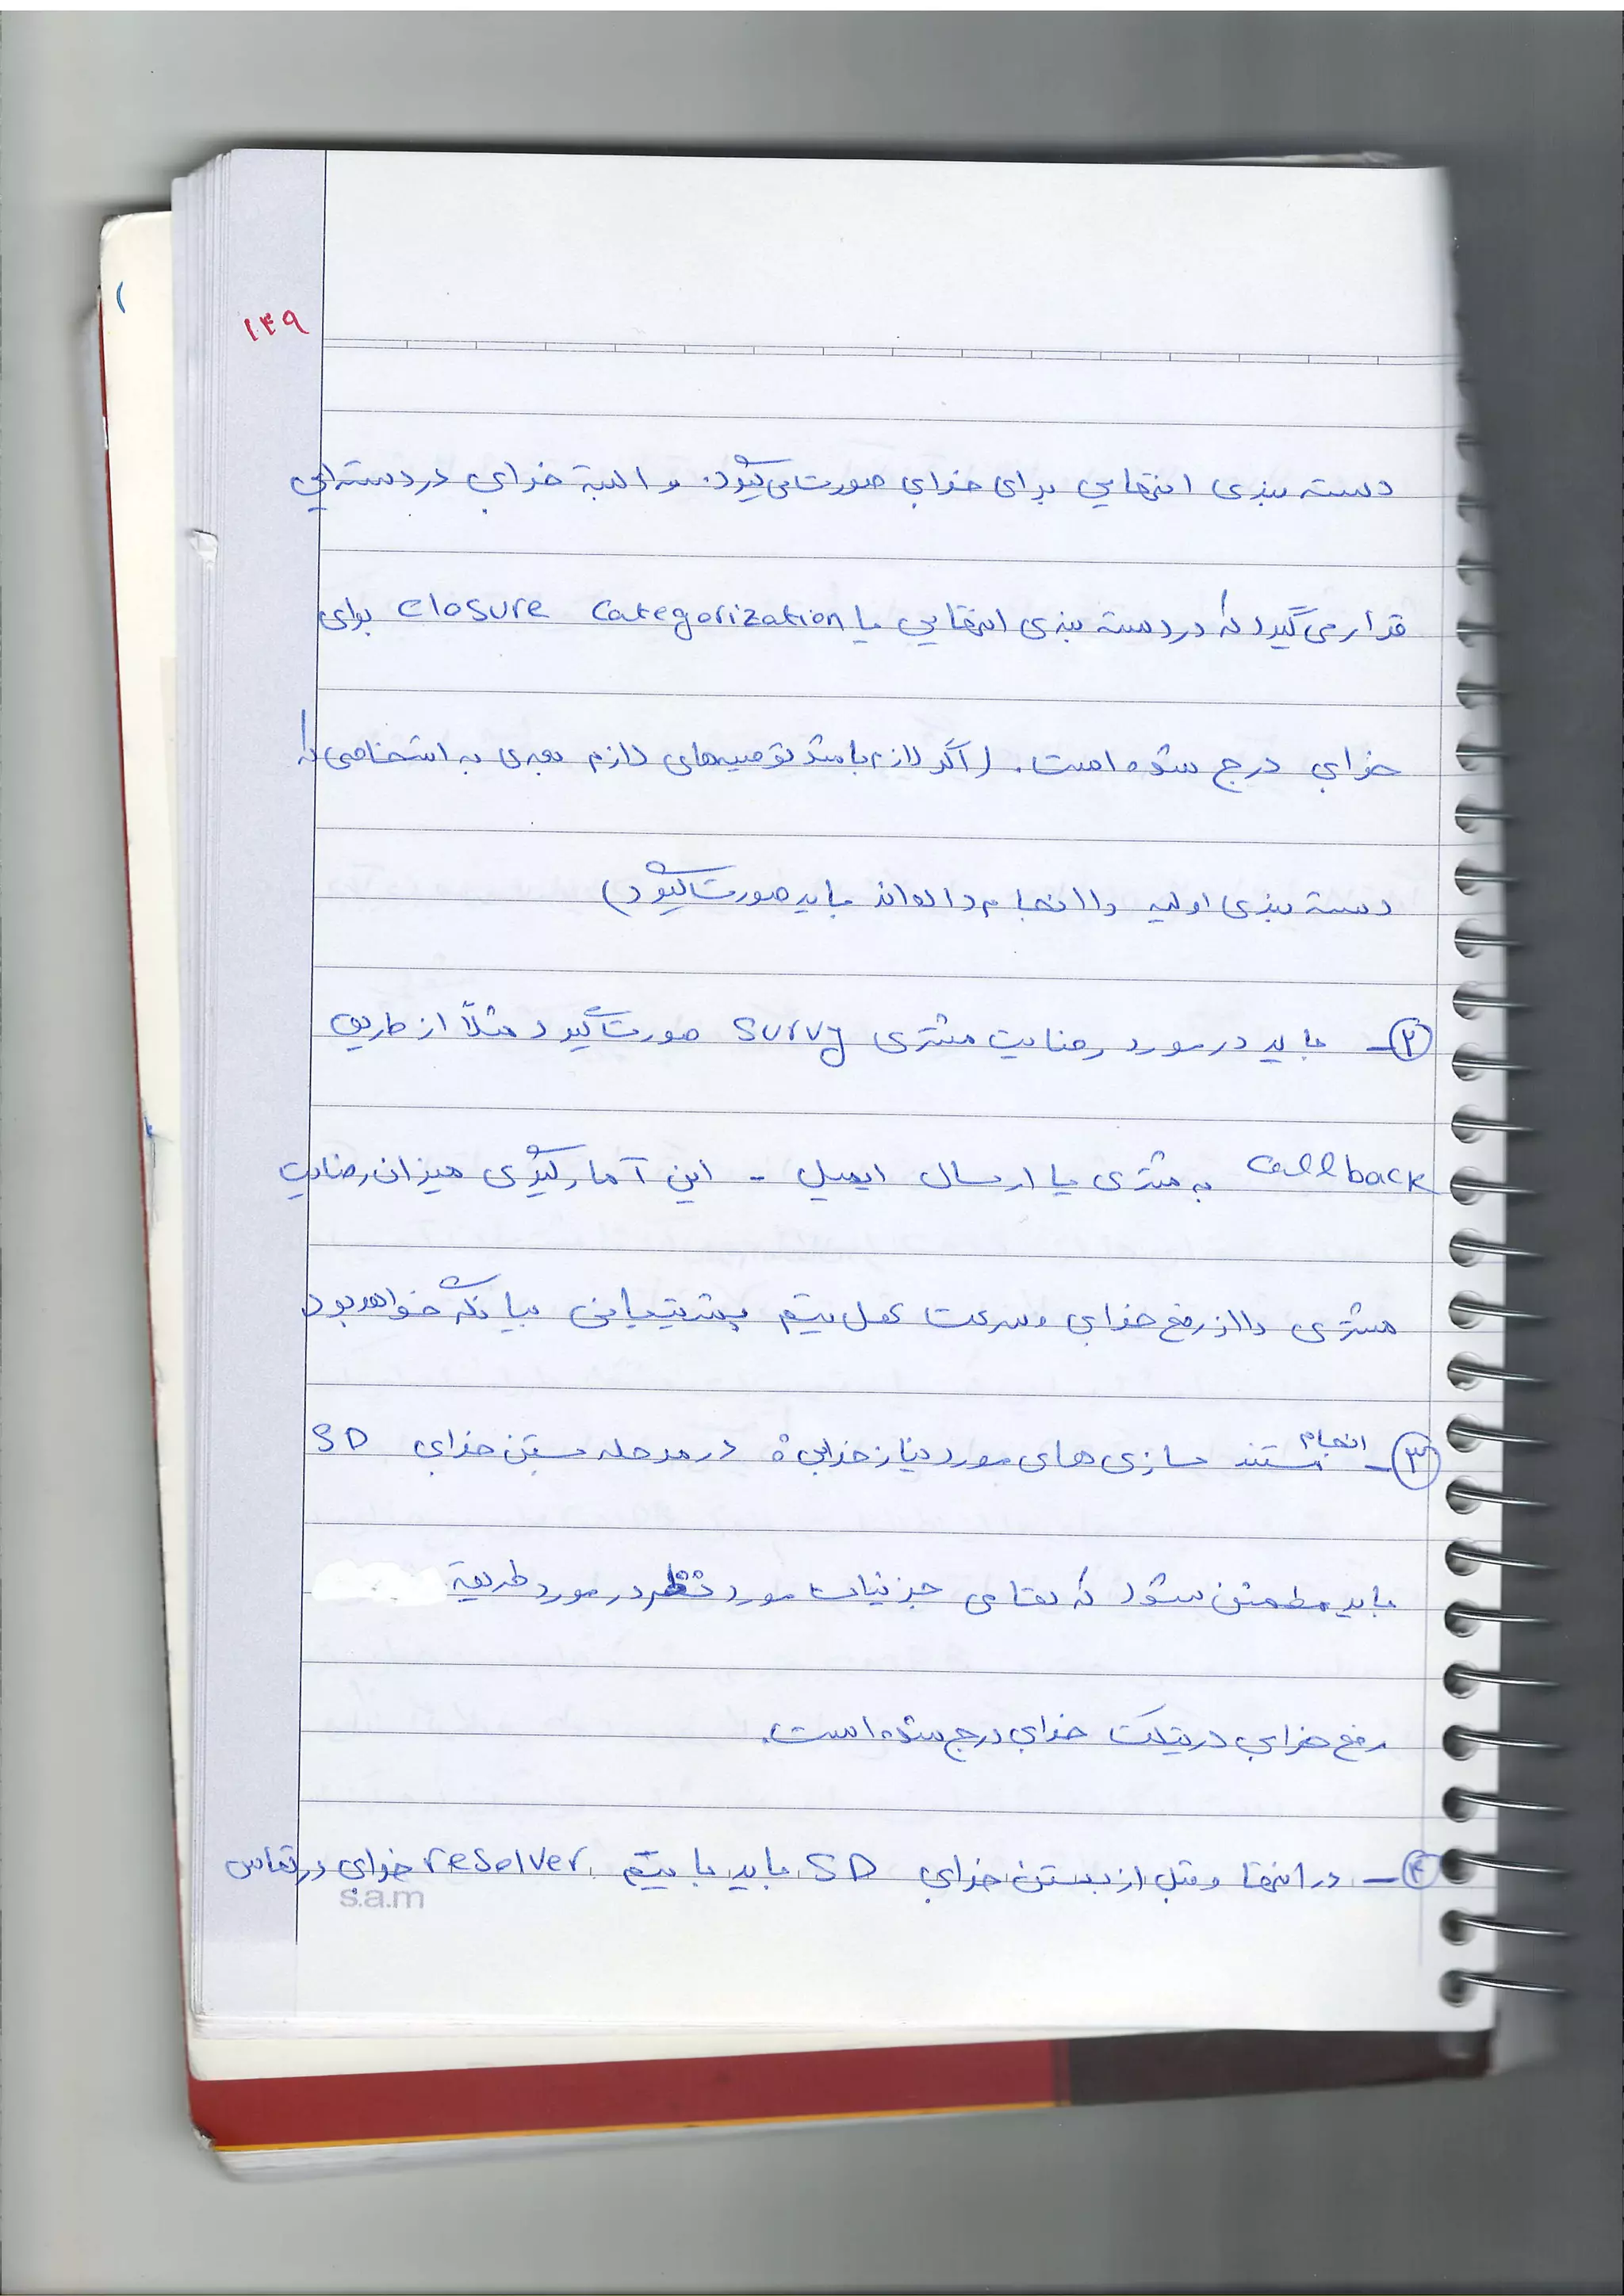 ۱۴۹
دسته بندی انتهایی برای خرابی صورت می‌گیرد. و البته خرابی در دسته‌ایی
قرار می گیرد که در دسته بندی انتهایی یا closure Categorization برای
خرابی درج شده است. (اگر لازم باشد توصیه‌های لازم بعدی به اشخاصی که
دسته بندی اولیه را انجام داده‌اند باید صورت گیرد)
۲- باید در مورد رضایت مشتری survy صورت گیرد مثلاً از طریق
Callback به مشتری یا ارسال ایمیل - این آمارگیری میزان رضایت
مشتری را از رفع خرابی و سرعت عمل تیم پشتیبانی بیانگر خواهد بود
۳- انجام مستند سازی های مورد نیاز خرابی ه در مرحله بستن خرابی SD
باید مطمئن شود که تمامی جزئیات مورد نظر در مورد طریقة
رفع خرابی در تیکت خرابی درج شده است.
۴- در انتها و قبل از بستن خرابی SD باید با تیم resolver خرابی در تماس
s.a.m